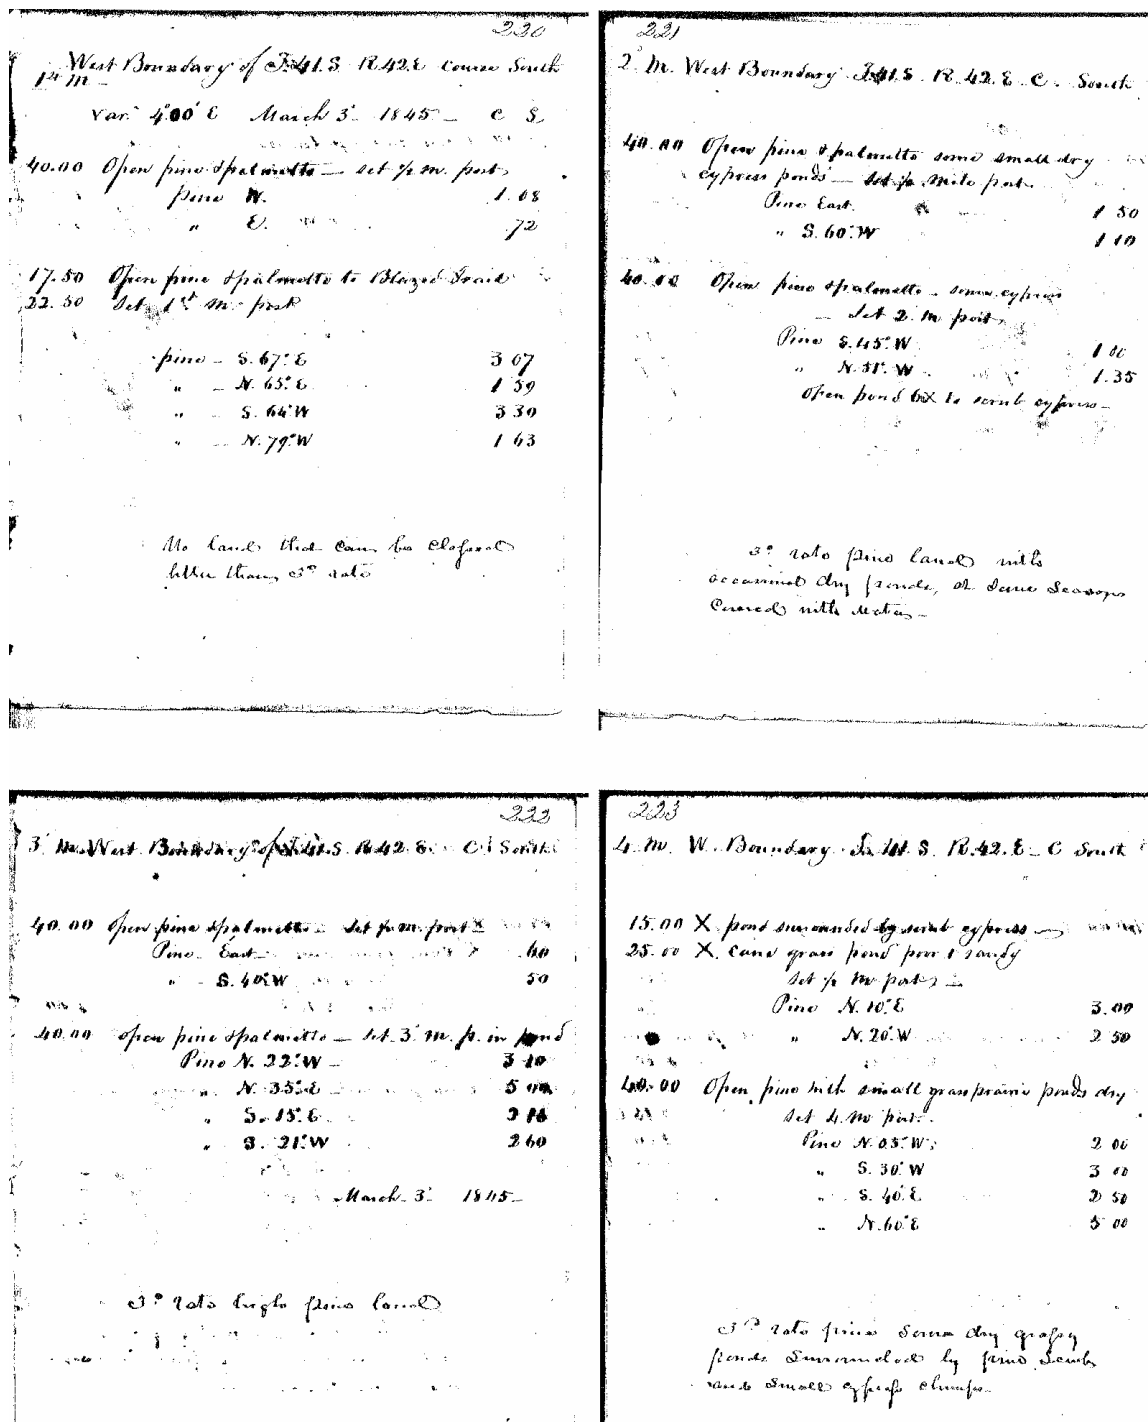 220
West Boundary of T.41.S R.42.E Course South
1st M
Var. 4°00' E March 3d 1845 C S.
40.00 Open pine & palmetto — set ½ m. post
Pine W. 1.68
" E. .72
17.50 Open pine & palmetto to Blazed Trail
22.50 Set 1st M. post
pine — S. 67° E 3 07
" — N. 65° E 1 59
" S. 64° W 3 30
" — N. 79° W 1 63
No land that can be classed
better than 3rd rate
221
2d M. West Boundary T.41.S R.42.E C. South
40.00 Open pine & palmetto some small dry
cypress ponds — set ½ Mile post
Pine East. 1 50
" S. 60° W 1 10
40.00 Open pine & palmetto — some cypress
— Set 2. M post
Pine S. 45° W 1 00
" N. 51° W 1.35
Open pond to scrub cypress —
3d rate pine land with
occasional dry ponds, at some Seasons
Covered with Water —
222
3d M. West Boundary of T.41.S R.42.E. C South
40.00 Open pine & palmetto — set ½ m. post
Pine East 60
" S. 40° W 50
40.00 Open pine & palmetto — set 3d M. p. in pond
Pine N. 22° W — 3 10
" N. 35° E 5 00
" S. 15° E
" S. 21° W 2 60
March 3d 1845 —
3d rate high pine land
223
4. M. W. Boundary T. 41 S. R. 42. E — C South
15.00 X pond surrounded by scrub cypress —
25.00 X cane grass pond poor & sandy
set ½ M. post —
Pine N. 10° E 3.00
" N. 20° W 2 50
40.00 Open pine with small grass prairie ponds dry
set 4. M post.
Pine N. 05° W. 2 00
" S. 30° W 3 00
" S. 40° E 2 50
" N. 60° E 5 00
3rd rate pine Some dry grassy
ponds Surrounded by pine Scrub
and Small cypress clumps.